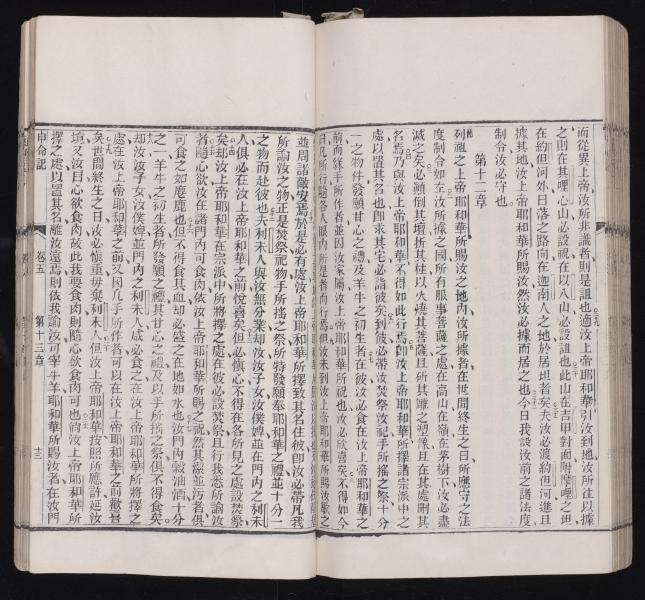 而從異上帝汝所非識者則是詛也適汝上帝耶和華引汝到地汝所往以據
之則在其哩心山必設祝在以八山必設詛也此山在吉甲對面附摩哩之坦
在約但河外日落之路向在迦南人之地於居坦者矣夫汝必渡約但河進且
據其地汝上帝耶和華所賜汝然汝必據而居之也今日我設汝前之諸法度
制令汝必守也
第十二章
列祖之上帝耶和華所賜汝之地內汝所據者在世間終生之日所應守之法
度制令如左汝所據之國所有服事菩薩之處在高山在嶺在茅樹下汝必盡
滅之矣必顛倒其壇折其柱以火燒其菩薩且斫其雕之塑像且在其處刪其
名焉乃與汝上帝耶和華不得如此行焉卽汝上帝耶和華所擇諸宗派中之
處以置其名也卽求其宅必詣彼矣到彼必帶汝焚祭汝祀手所搖之祭十分
一之物件發願甘心之禮及羊牛之初生者在彼汝必食在汝上帝耶和華之
前而綠手所作者並因汝家屬汝上帝耶和華所祝也汝必欣喜矣不得如今
日凡所行隨各人眼內所是者而行焉但汝未到汝上帝耶和華所賜汝歇之
並周諸敵安焉於是必有處汝上帝耶和華所擇致其名在彼卽汝必帶凡我
所諭汝之物正是焚祭祀物手所搖之祭所特發願奉耶和華之禮並十分一
之物而赴彼也夫利未人與汝無分業却汝汝子女汝僕婢並在門內之利未
人俱必在汝上帝耶和華之前悅喜矣但必慎心不得在各所見之處設焚祭
矣却汝上帝耶和華在宗派中所將擇之處在彼必設焚祭且行我悉所諭汝
者隨心欲汝在諸門內可食肉依汝上帝耶和華所賜之祝然其潔並污者俱
可食之如麀鹿也但不得食其血却必盡之在地如水也汝門內穀油酒十分
之一羊牛之初生者所發願之禮其甘心之禮及以手所搖之祭俱不得食矣
却汝汝子女汝僕婢並門內之利未人咸必食之在汝上帝耶和華所將擇之
處在汝上帝耶和華之前又因凡手所作者可以在汝上帝耶和華之前歡喜
矣世間終生之日汝必慎重毋棄利未人但汝上帝耶和華按照所應許延汝
境又汝曰心欲食肉故此我要食肉則隨心欲食肉可也倘汝上帝耶和華所
擇之處以置其名離汝遠焉則依我諭汝可宰牛羊耶和華所賜汝者在汝門
申命記 卷五 第十三章 十三